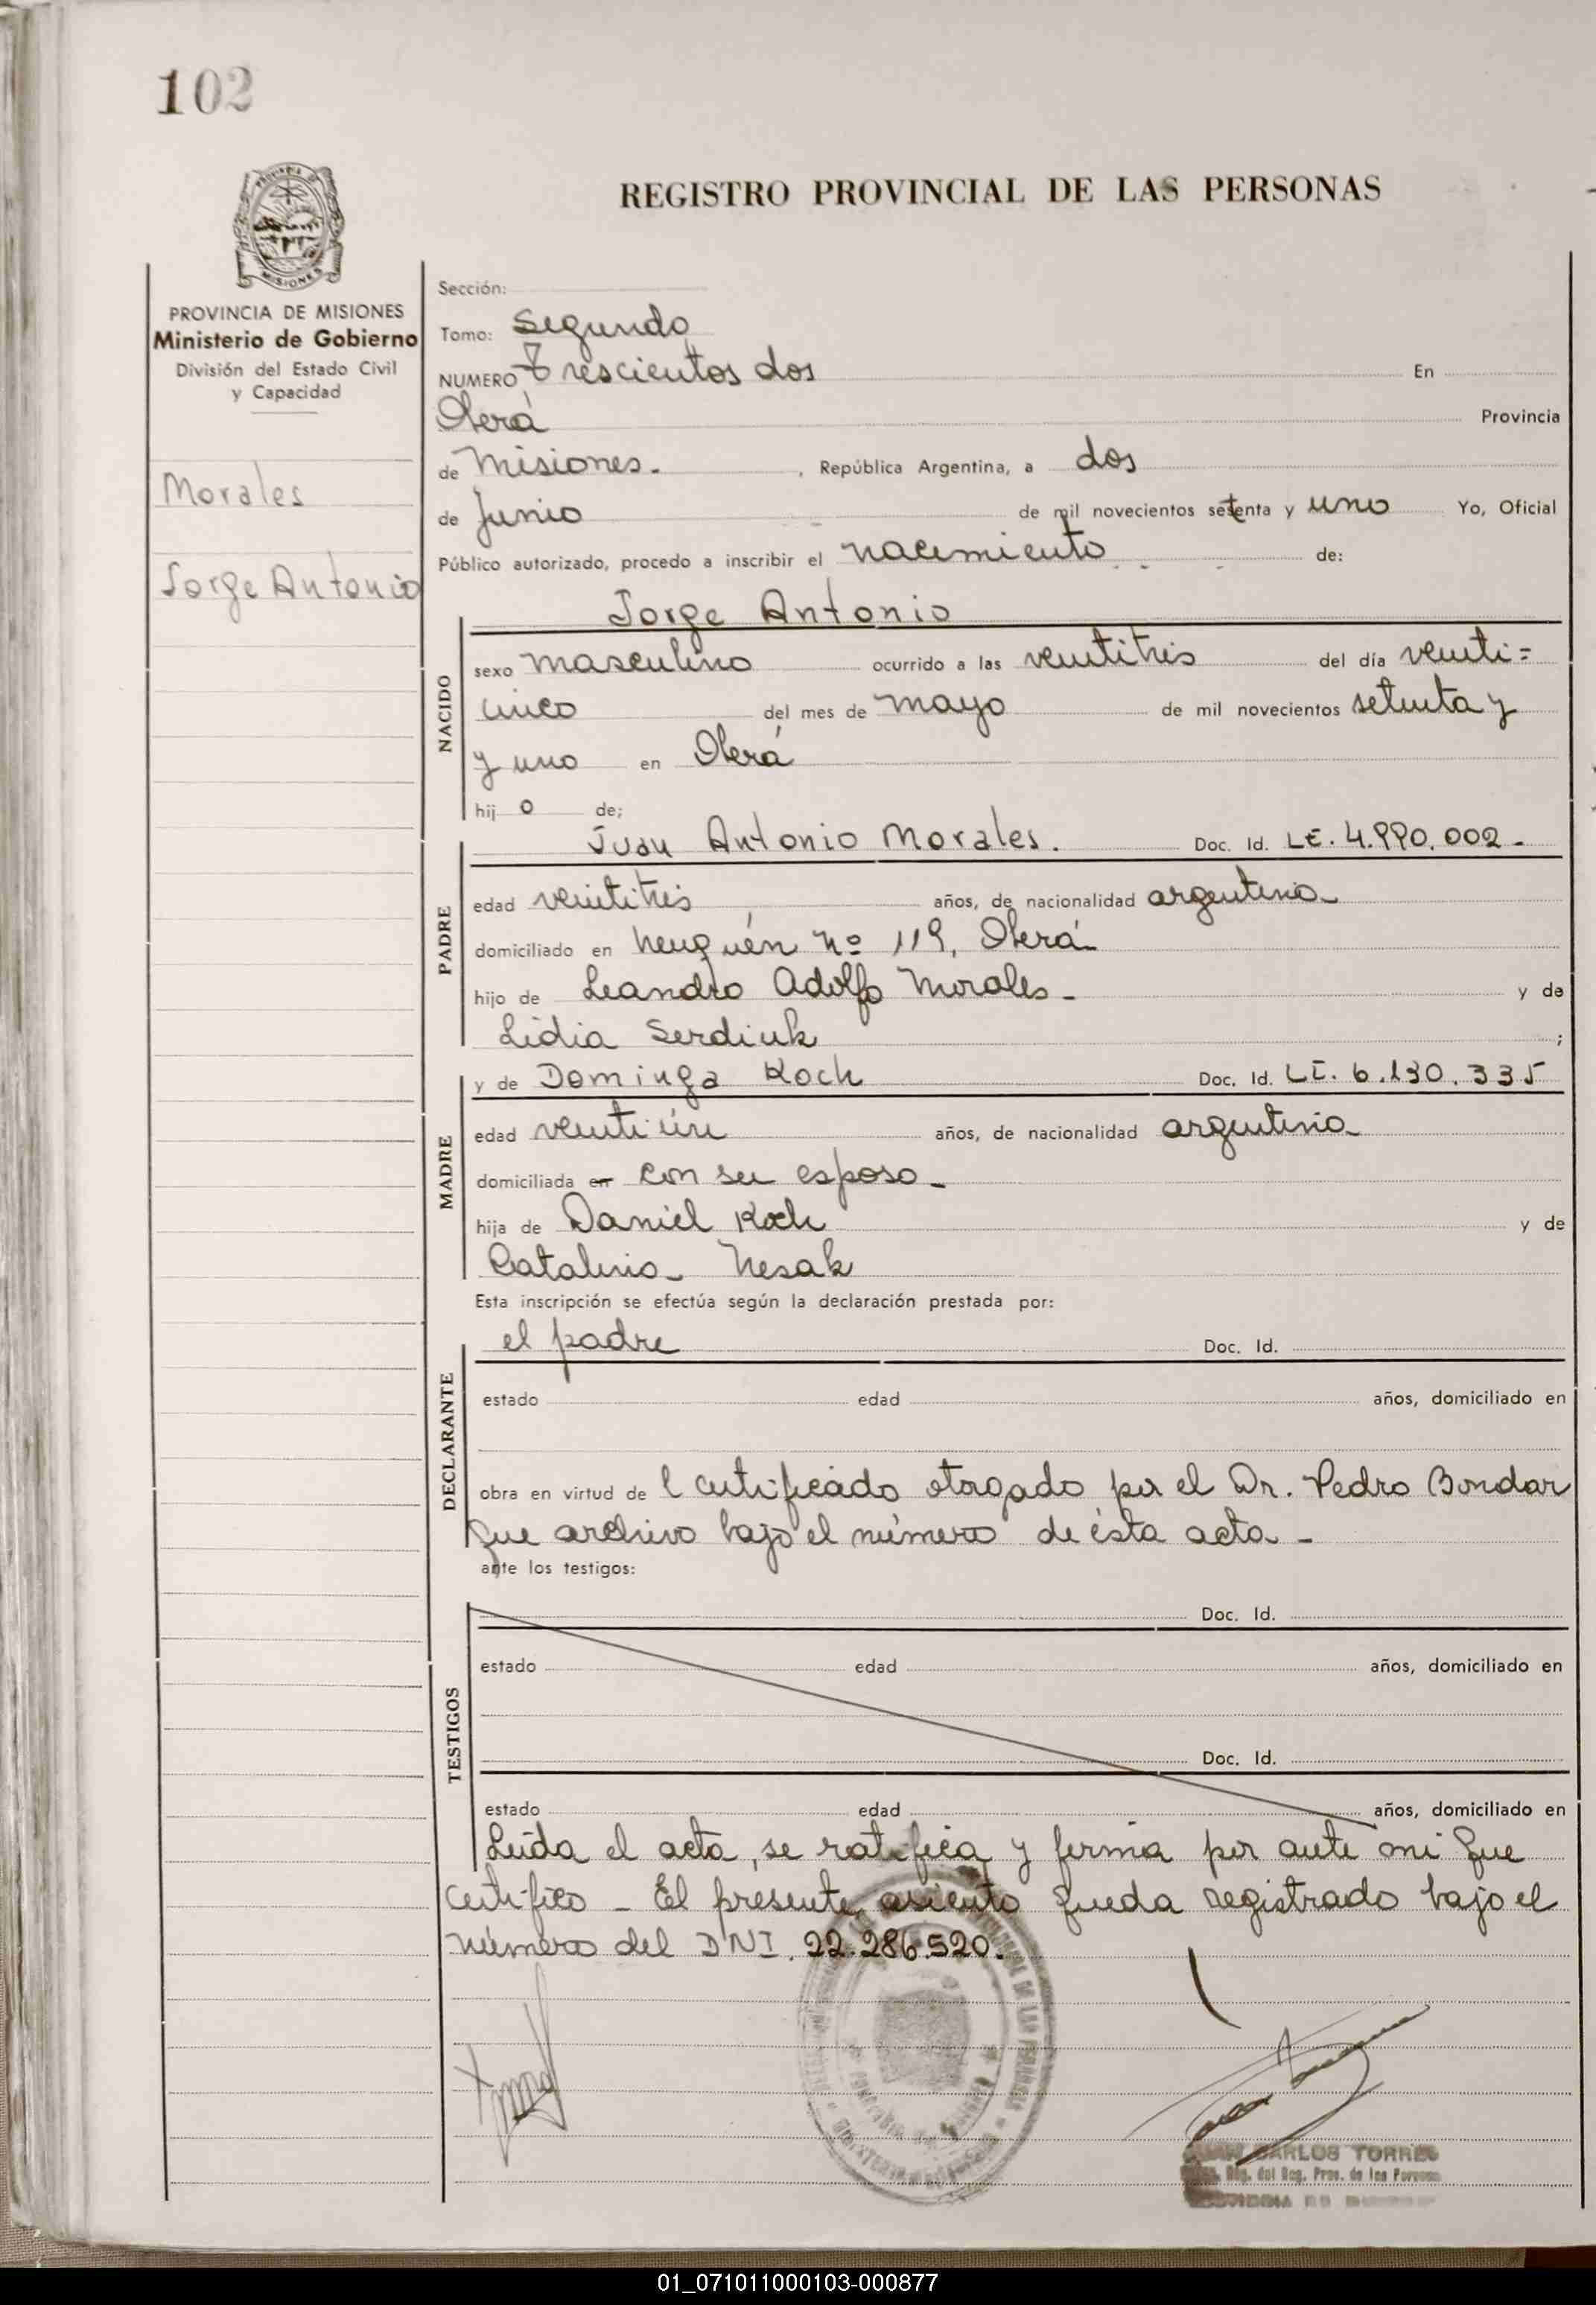 102
PROVINCIA DE MISIONES
REGISTRO PROVINCIAL DE LAS PERSONAS
PROVINCIA DE MISIONES
Ministerio de Gobierno
División del Estado Civil
y Capacidad
Morales
Jorge Antonio
Sección:
Tomo: Segundo
NUMERO Trescientos dos En
Oberá Provincia
de Misiones. , República Argentina, a dos
de Junio de mil novecientos setenta y uno Yo, Oficial
Público autorizado, procedo a inscribir el nacimiento de:
Jorge Antonio
NACIDO
sexo masculino ocurrido a las veintitrés del día veinti=
cinco del mes de mayo de mil novecientos setenta y
y uno en Oberá
hij o de;
PADRE
Juan Antonio Morales. Doc. Id. LE. 4.990.002-
edad veintitrés años, de nacionalidad argentina
domiciliado en Neuquén nº 119, Oberá
hijo de Leandro Adolfo Morales- y de
Lidia Serdiuk ;
MADRE
y de Dominga Koch Doc. Id. 6.130.335
edad veintiún años, de nacionalidad argentina
domiciliada en con su esposo-
hija de Daniel Koch y de
Catalina Nesak
Esta inscripción se efectúa según la declaración prestada por:
DECLARANTE
el padre Doc. Id.
estado edad años, domiciliado en
obra en virtud de l certificado otorgado por el Dr. Pedro Bondar
que archivo bajo el número de ésta acta-
ante los testigos:
TESTIGOS
Doc. Id.
estado edad años, domiciliado en
Doc. Id.
estado edad años, domiciliado en
Leída el acta, se ratifica y firma por ante mi que
certifico - El presente asiento queda registrado bajo el
número del DNI. 22.286.520.
CARLOS TORRES
del Reg. Prov. de las
01_071011000103-000877